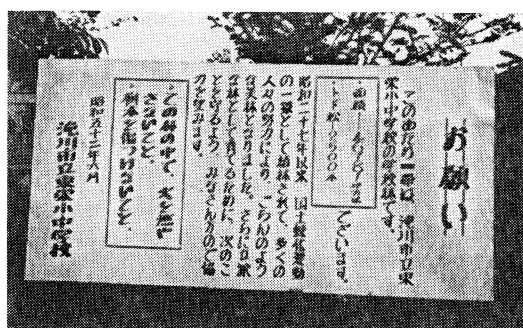 お願い
このあたり一帯は、滝川市立東
栄小中学校の学校林です。
・面積
・トド松
でございます。
昭和二十七年以来 国土緑化運動
の一環として植林されて、多くの
人々の努力により、ごらんのよう
な美林となりました。さらに立派
な林として育てるために、次のこ
とを守るよう、みなさん方のご協
力を望みます。
・この林の中で、火を
さないこと。
・樹木を傷つけないこと。
昭和五十二年六月
滝川市立東栄小中学校